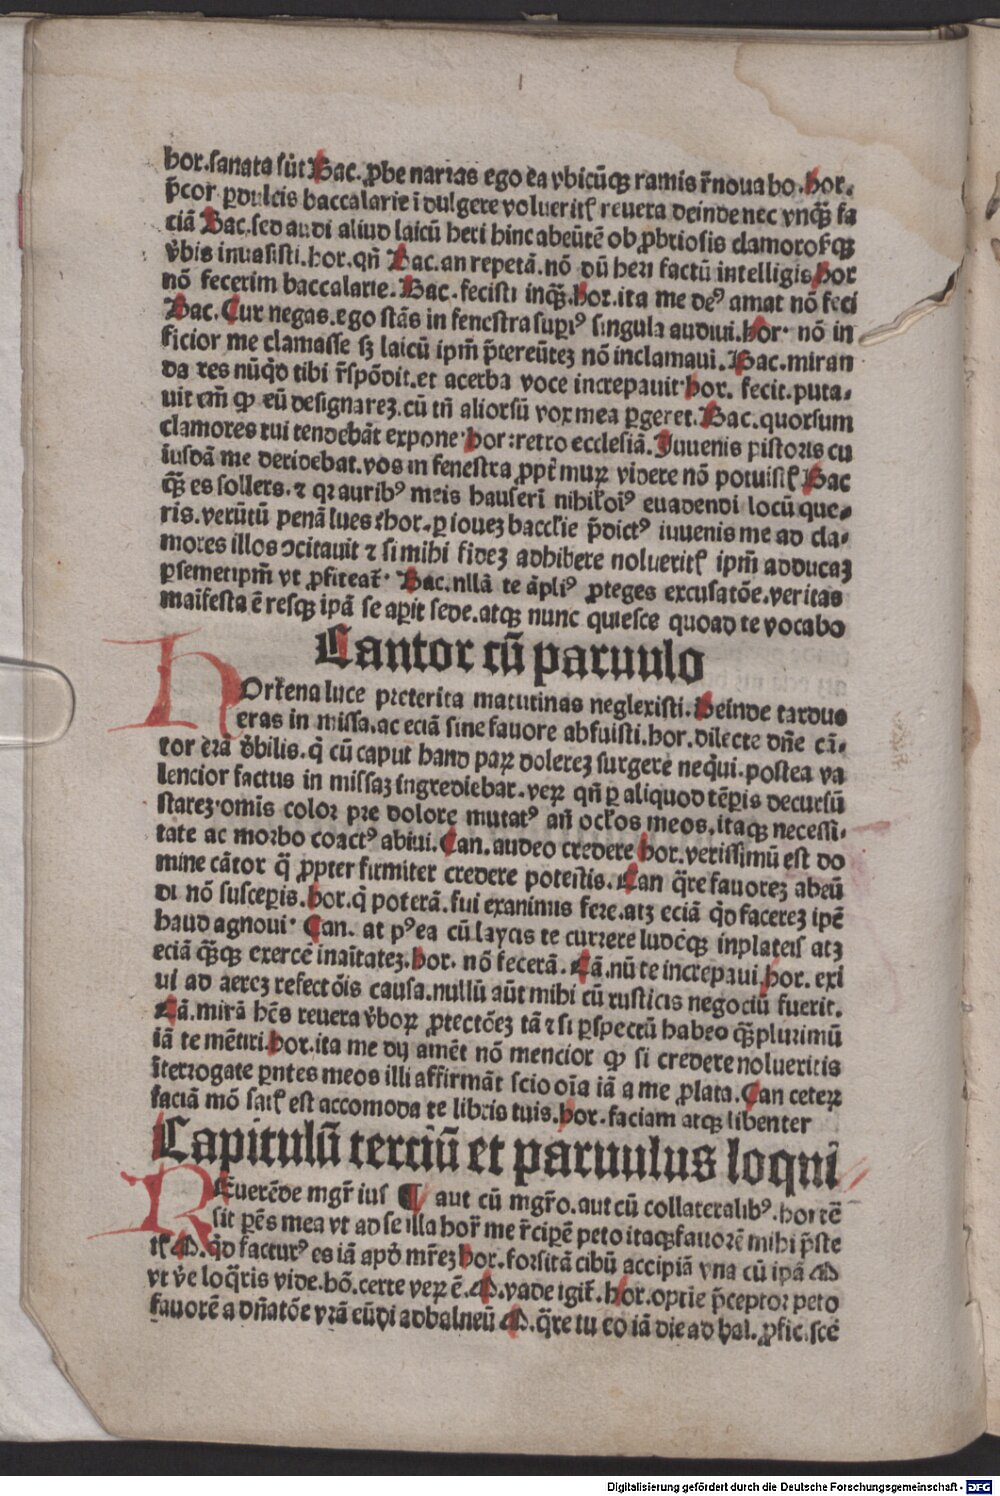 hor.sanata sūt Bac. ꝓbe narras ego ea vbicūqꝫ ramis r̄noua bo. hor.
p̄cor ꝑdulcis baccalarie ī dulgere volueritꝭ reuera deinde nec vnqꝫ̄ fa
ciā Bac.sed audi aliud laicū heri hinc abeūtē ob ꝓbriosis clamorosꝭqꝫ
v̄bis inuasisti.hor.qn̄ Bac.an repetā.nō dū heri factū intelligis hor
nō fecerim baccalarie. Bac.fecisti inqꝫ̄.hor.ita me deꝰ amat nō feci
Bac. Cur negas.ego stās in fenestra supiꝰ singula audiui.hor· nō in
ficior me clamasse sꝫ laicū ipm̄ p̄tereūteꝫ nō inclamaui. Bac.miran
da res nūqd̄ tibi r̄spōdit.et acerba voce increpauit·hor. fecit.puta⸗
uit em̄ ꝙ eū designareꝫ.cū tn̄ aliorsū vox mea ꝑgeret. Bac.quorsum
clamores tui tendebāt expone·hor:retro ecclesiā. Juuenis pistoris cu
iusdā me deridebat.vos in fenestra ꝓpt̄ muꝝ videre nō potuistꝭ Bac
qꝫ̄ es sollers.⁊ qꝛ auribꝰ meis hauseri nihil oīꝰ euadendi locū que⸗
ris.verūtū penā lues hor.ꝑ ioueꝫ bacc̄lie p̄dictꝰ iuuenis me ad cla⸗
mores illos ↄcitauit ⁊ si mihi fideꝫ adhibere nolueritꝭ ipm̄ adducaꝫ
ꝑsemetipm̄ vt ꝓfiteat̄· Bac.nllā te āpliꝰ ꝓteges excusatōe.veritas
maīfesta ē resqꝫ ipā se aꝑit sede.atqꝫ nunc quiesce quoad te vocabo
Cantor cū paruulo
HOrkena luce preterita matutinas neglexisti. Deinde tardus
eras in missa.ac eciā sine fauore abfuisti.hor.dilecte dn̄e cā⸗
tor erā d̄bilis.q̄ cū caput haud paꝝ dolereꝫ surgere neq̇ui.postea va
lencior factus in missaꝫ ingrediebar.veꝝ qn̄ ꝑ aliquod tēꝑis decursū
stareꝫ·omīs color pre dolore mutatꝰ an̄ oc̄los meos.itaqꝫ necessi⸗
tate ac morbo coactꝰ abiui. Can.audeo credere hor.verissimū est do
mine cātor q̄ ꝓpter firmiter credere potestis. Can q̄re fauoreꝫ abeū
di nō susceꝑis.hor.q̇ poterā.fui exanimis fere.atꝫ eciā qd̄ facereꝫ ipē
haud agnoui· Can. at pꝰea cū laycis te currere ludeq̄ꝫ inplateis atꝫ
eciā qꝫ̄qꝫ exercē inaītateꝫ.hor. nō fecerā. Cā.nū te increpaui.hor. exi
ui ad aereꝫ refectōis causa.nullū aūt mihi cū rusticis negociū fuerit.
Cā.mirā hēs reuera v̄boꝝ ꝓtectōeꝫ tā ⁊ si ꝑspectū habeo qꝫ̄plurimū
iā te mētiri.hor.ita me dij amēt nō mencior ꝙ si credere nolueritis
īterrogate ꝑntes meos illi affirmāt scio oīa iā a me ꝓlata. Can ceteꝝ
faciā mō satꝭ est accomoda te libris tuis.hor.faciam atqꝫ libenter
Capitulū terciū et paruulus loqui
REuerēde mgr̄ ius ¶ aut cū mgr̄o.aut cū collateralibꝰ.hortē
sit ꝑēs mea vt ad se illa hor̄ me r̄cipē peto itaqꝫ fauorē mihi p̄ste
tꝭ M.qd̄ facturꝰ es iā apd̄ mr̄eꝫ hor.forsitā cibū accipiā vna cū ipā M
vt v̄e loq̄ris vide.hō.certe veꝝ ē.M.vade igit̄.hor.optie p̄ceptor peto
fauorē a dn̄atōe vrā eūdi adbalneū M.q̄re tu eo iā die ad bal.ꝓfic.sce
Digitalisierung gefördert durch die Deutsche Forschungsgemeinschaft - DFG